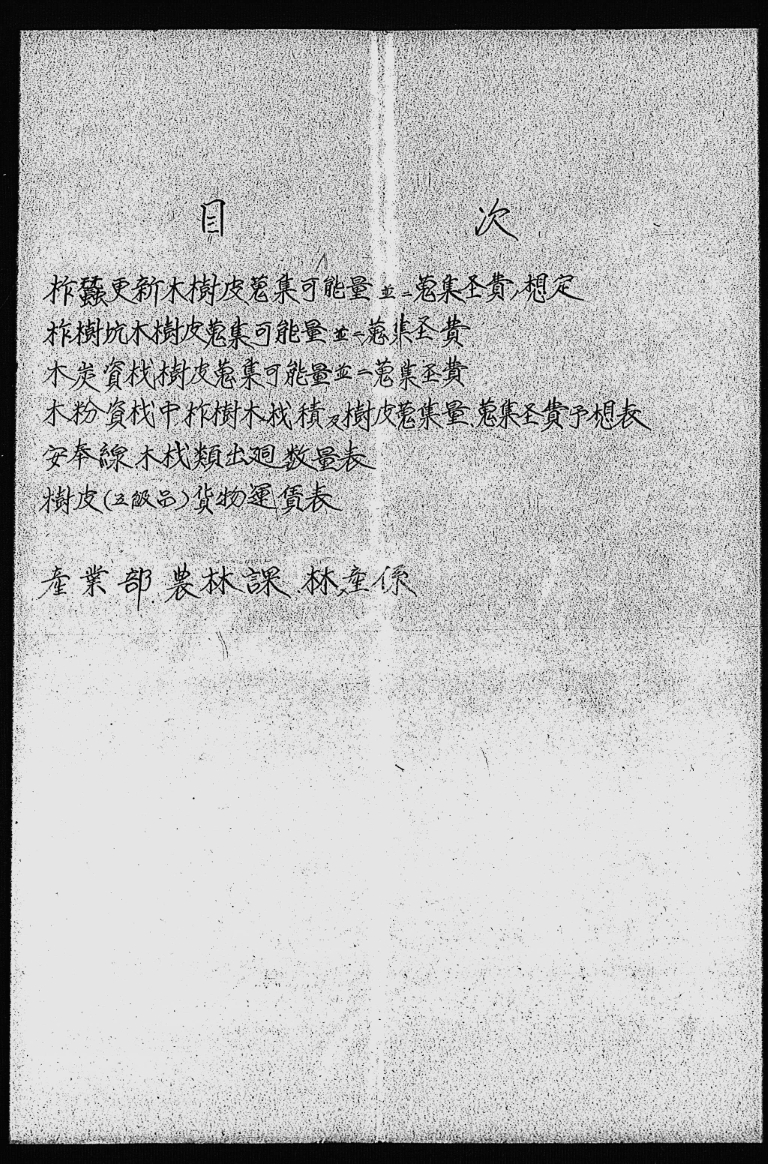 目次
柞蚕更新木樹皮蒐集可能量並ニ蒐集圣費ノ想定
柞樹坑木樹皮蒐集可能量並ニ蒐集圣費
木炭資材樹皮蒐集可能量並ニ蒐集圣費
木粉資材中柞樹木材積及樹皮蒐集量、蒐集圣費予想表
安奉線木材類出廻数量表
樹皮(五級品)貨物運賃表
産業部農林課林産係